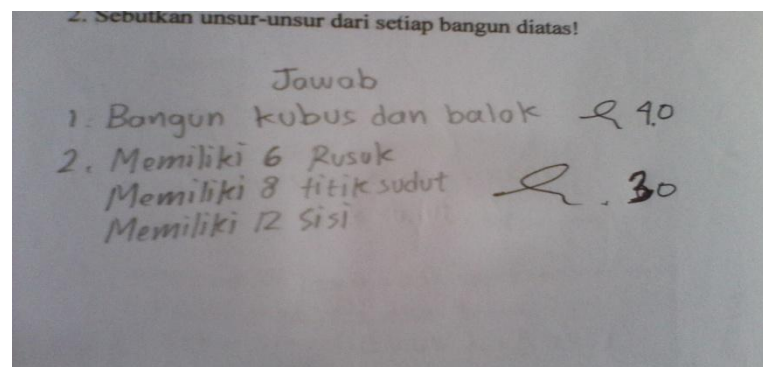 2. Sebutkan unsur-unsur dari setiap bangun diatas!
Jawab
1. Bangun kubus dan balok 40
2. Memiliki 6 Rusuk
Memiliki 8 titik sudut 30
Memiliki 12 Sisi